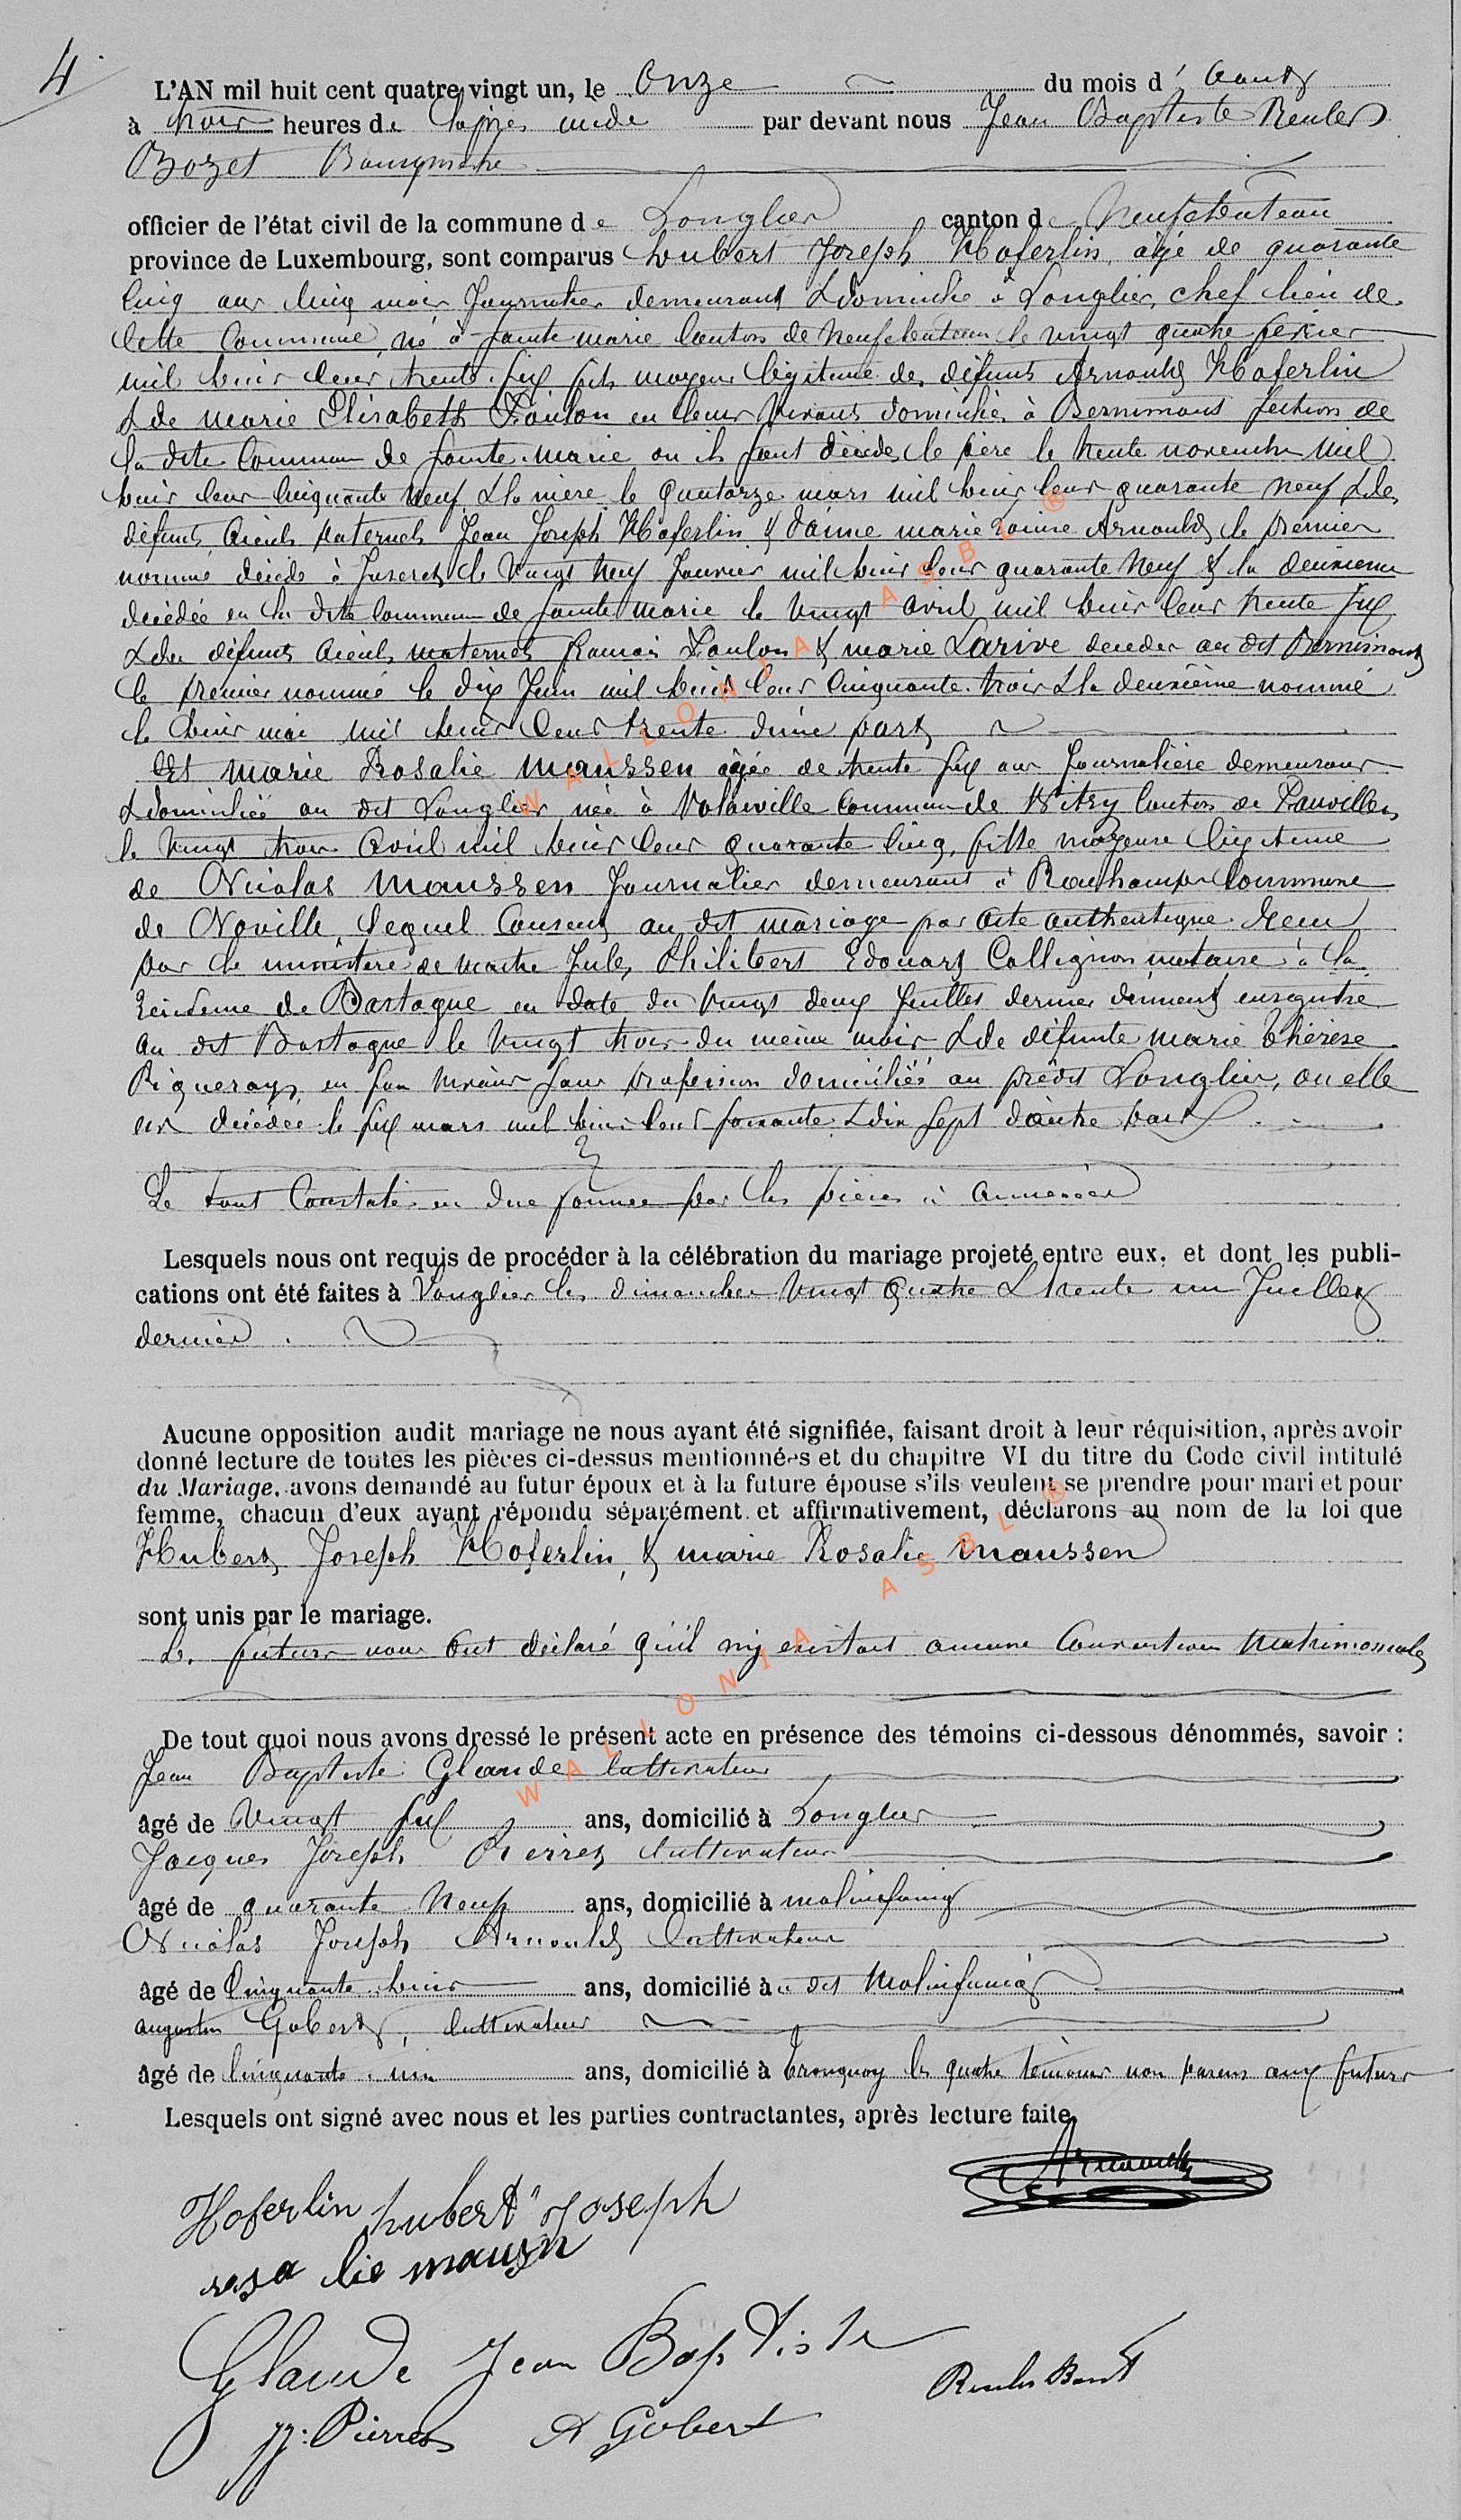 4
L'AN mil huit cent quatre vingt un, le Onze du mois d' Aout
à trois heures de l'apres midi par devant nous Jean Baptiste Reuler
Bozet Bourgmestre
officier de l'état civil de la commune de Longlier canton de Neufchateau
province de Luxembourg, sont comparus hubert Joseph Hoferlin, agé de quarante
cinq ans cinq mois Journalier demeurant & domicilié à Longlier, chef lieu de
cette Commune, né à sainte marie Canton de Neufchateau le vingt quatre fevrier
mil huit cent trente six fils majeur légitime des défunts Arnould Hoferlin
& de marie Elisabeth Poulon en leur vivant domiciliés à Bernimont section de
la dite Commune de sainte marie ou ils sont décédés le père le trente novembre mil
huit cent cinquante neuf & la mère le quatorze mars mil huit cent quarante neuf & des
défunts aieuls paternels Jean Joseph Hoferlin & daime marie Louise Arnould le premier
nommé décédé à Juseret le vingt neuf Janvier mil huit cent quarante neuf & la deuxieme
décédée en la dite Commune de sainte marie le vingt avril mil huit cent trente six
& des défunts aieuls maternels François Poulon & marie Larive décédés au dit Bernimont
le premier nommé le dix Juin mil huit cent cinquante trois & la deuxième nommé
le huit mai mil huit cent trente d'une part
Et marie Rosalie Maussen agée de trente six ans Journalière demeurant
& domiciliée au dit Longlier née à Volaiville Commune de Witry Canton de Fauvillers
le vingt trois avril mil huit cent quarante cinq, fille majeure légitime
de Nicolas Maussen Journalier demeurant à Rachamps Commune
de Noville lequel Consent au dit mariage par acte authentique recu
par le ministère de maitre Jules Philibert Edouard Collignon notaire à la
résidence de Bastogne en date du vingt deux Juillet dernier dûment enregistré
au dit Bastogne le vingt trois du même mois & de défunte marie thérèse
Piqueray, en son vivant sans profession domiciliée au prédit Longlier, ou elle
est décédée le six mars mil huit cent soixante & dix sept d'autre part
Le tout Constaté en due forme par les pièces à annexer
Lesquels nous ont requis de procéder à la célébration du mariage projeté entre eux, et dont les publi-
cations ont été faites à Longlier les dimanches vingt quatre & trente un Juillet
dernier.
Aucune opposition audit mariage ne nous ayant été signifiée, faisant droit à leur réquisition, après avoir
donné lecture de toutes les pièces ci-dessus mentionnées et du chapitre VI du titre du Code civil intitulé
du Mariage, avons demandé au futur époux et à la future épouse s'ils veulent se prendre pour mari et pour
femme, chacun d'eux ayant répondu séparément et affirmativement, déclarons au nom de la loi que
Hubert Joseph Hoferlin, & marie Rosalie Maussen
sont unis par le mariage.
Les futurs nous ont déclaré qu'il n'y existait aucune Convention Matrimoniale
De tout quoi nous avons dressé le présent acte en présence des témoins ci-dessous dénommés, savoir :
Jean Baptiste Glaude Cultivateur
âgé de Vingt six ans, domicilié à Longlier
Jacques Joseph Pierret Cultivateur
âgé de quarante Neuf ans, domicilié à molinfaing
Nicolas Joseph Arnould Cultivateur
âgé de Cinquante huit ans, domicilié à u dit Molinfaing
augustin Gobert, Cultivateur
âgé de Cinquante un ans, domicilié à tronquoy les quatre témoins non parens aux futurs
Lesquels ont signé avec nous et les parties contractantes, après lecture faite.
Arnould
Hoferlin hubert Joseph
rosa lie mausn
Glaude Jean Baptiste
Reuler Bozet
JJ: Pierret A Gobert
WALLONIA ASBL ®
WALLONIA ASBL ®